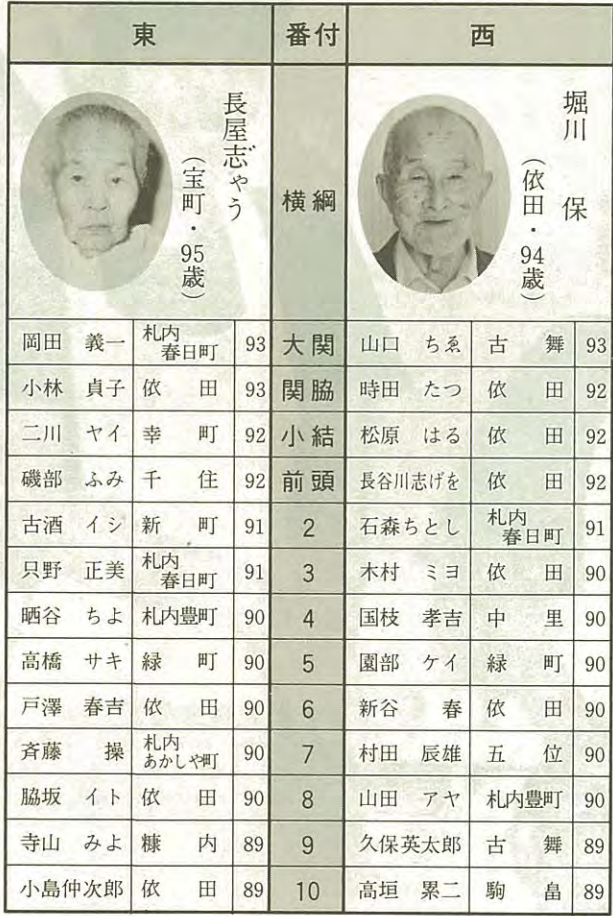 東 番付 西
長屋志゛ゃう
（宝町・95歳）
横綱
堀川 保
（依田・94歳）
岡田 義一 札内春日町 93 大関 山口 ちゑ 古舞 93
小林 貞子 依田 93 関脇 時田 たつ 依田 92
二川 ヤイ 幸町 92 小結 松原 はる 依田 92
磯部 ふみ 千住 92 前頭 長谷川志げを 依田 92
古酒 イシ 新町 91 2 石森ちとし 札内春日町 91
只野 正美 札内春日町 91 3 木村 ミヨ 依田 90
晒谷 ちよ 札内豊町 90 4 国枝 孝吉 中里 90
高橋 サキ 緑町 90 5 園部 ケイ 緑町 90
戸澤 春吉 依田 90 6 新谷 春 依田 90
斉藤 操 札内あかしや町 90 7 村田 辰雄 五位 90
脇坂 イト 依田 90 8 山田 アヤ 札内豊町 90
寺山 みよ 糠内 89 9 久保英太郎 古舞 89
小島仲次郎 依田 89 10 高垣 累二 駒畠 89